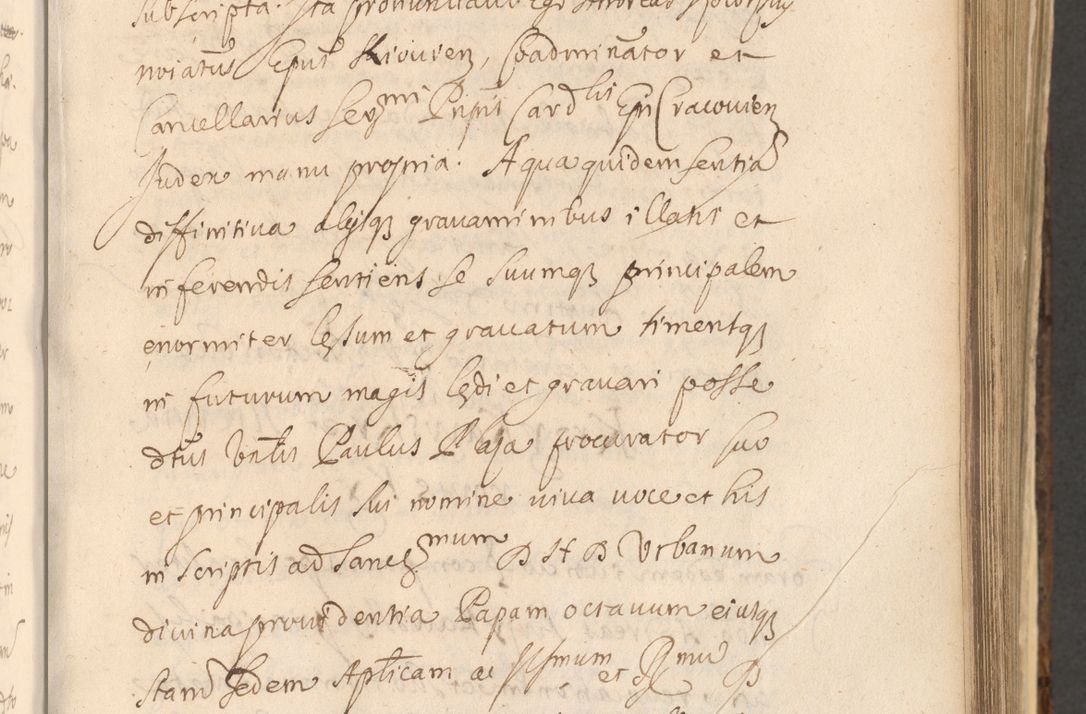 subscripta. Ita pronunciavi Ego Andreas
noiatus Epus Kiiovien, Coadminator et
Cancellarius Sermi Pnpis Cardlis Epi Cracovien
Judex manu propria. A qua quidem sentia
diffinitiva alijsq gravaminibus illatis et
inferendis sentiens se suumq principalem
enormiter lęsum et gravatum timentq
in futurum magis lędi et gravari posse
dtus Vnlis Paulus Plaja procurator suo
et principalis sui nomine viva voce et his
in scriptis ad Sanctmum D N D Vrbanum
divina providentia Papam octavum eiusq
stam Sedem Aplicam ac Issmum et Rmu D